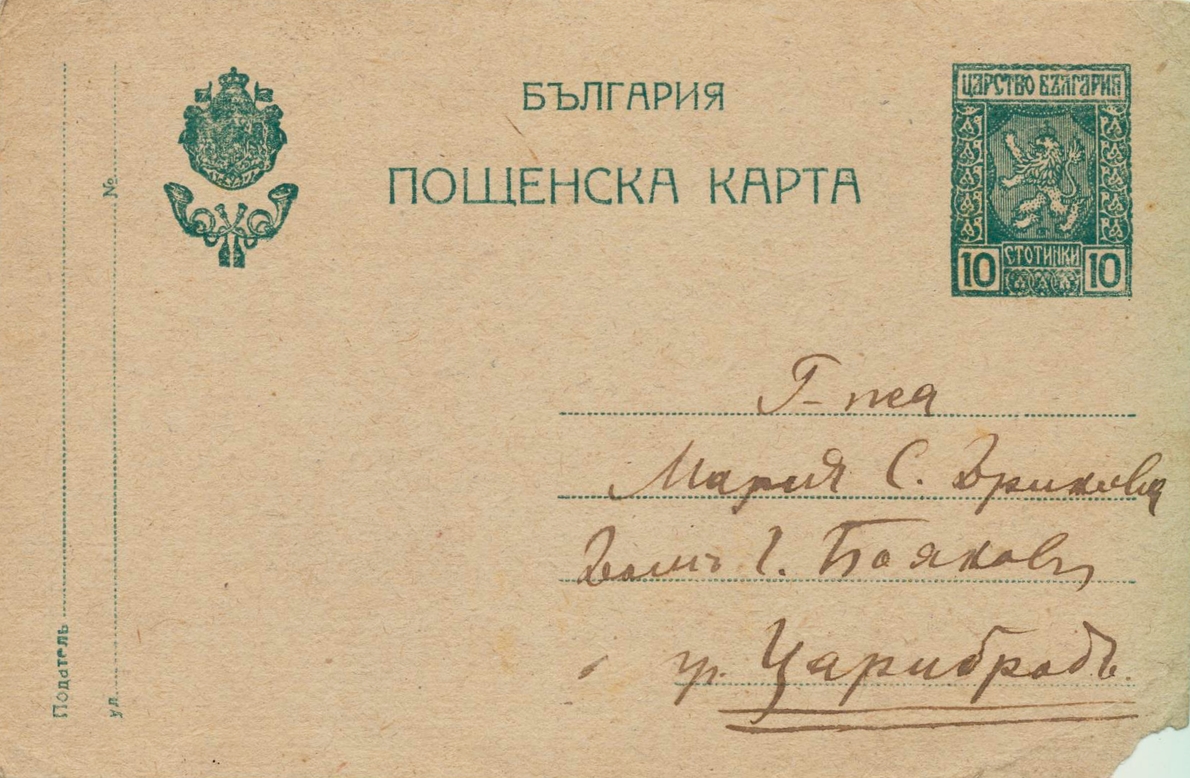 БЪЛГАРИЯ
ПОЩЕНСКА КАРТА
ЦАРСТВО БЪЛГАРИЯ
СТОТИНКИ
10 10
Податель
ул. №
Г-жа
Мария С. Дрикова
Домъ Г. Бояковъ
гр. Царибродъ.